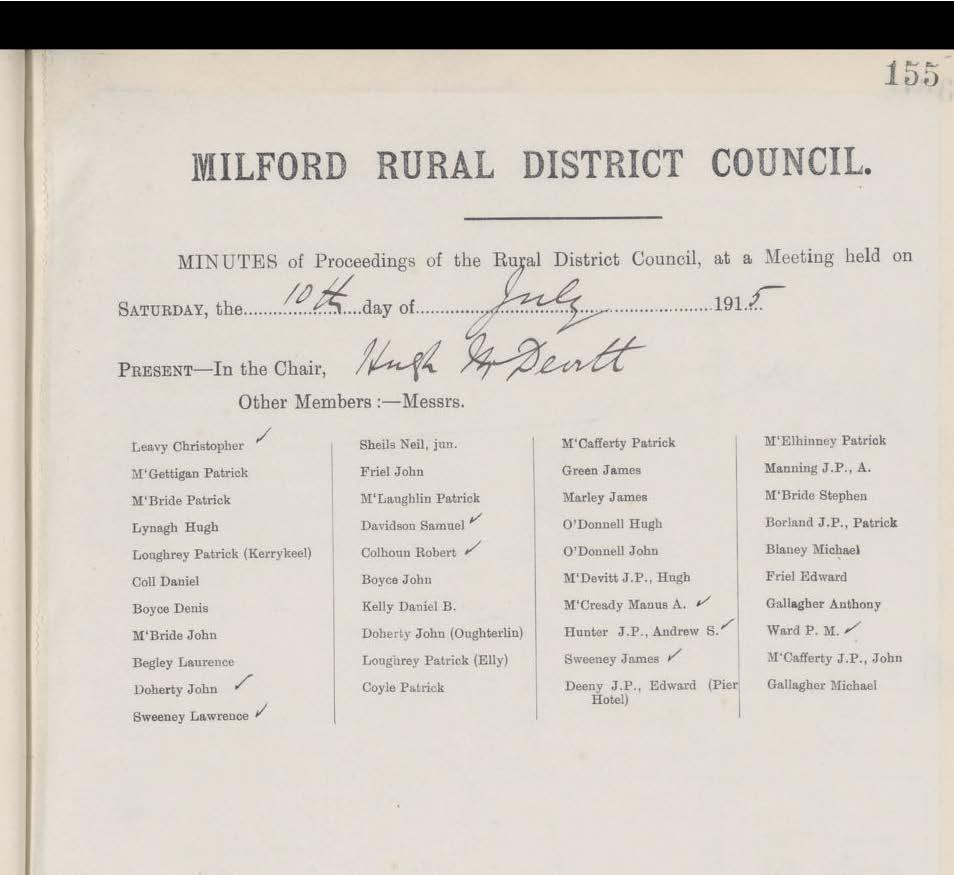 155
MILFORD RURAL DISTRICT COUNCIL.
MINUTES of Proceedings of the Rural District Council, at a Meeting held on
SATURDAY, the 10th day of July 1915
PRESENT—In the Chair, Hugh McDevitt
Other Members :—Messrs.
Leavy Christopher ✓
M‘Gettigan Patrick
M‘Bride Patrick
Lynagh Hugh
Loughrey Patrick (Kerrykeel)
Coll Daniel
Boyce Denis
M‘Bride John
Begley Laurence
Doherty John ✓
Sweeney Lawrence ✓
Sheils Neil, jun.
Friel John
M‘Laughlin Patrick
Davidson Samuel ✓
Colhoun Robert ✓
Boyce John
Kelly Daniel B.
Doherty John (Oughterlin)
Loughrey Patrick (Elly)
Coyle Patrick
M‘Cafferty Patrick
Green James
Marley James
O’Donnell Hugh
O’Donnell John
M‘Devitt J.P., Hugh
M‘Cready Manus A. ✓
Hunter J.P., Andrew S. ✓
Sweeney James ✓
Deeny J.P., Edward (Pier
Hotel)
M‘Elhinney Patrick
Manning J.P., A.
M‘Bride Stephen
Borland J.P., Patrick
Blaney Michael
Friel Edward
Gallagher Anthony
Ward P. M. ✓
M‘Cafferty J.P., John
Gallagher Michael